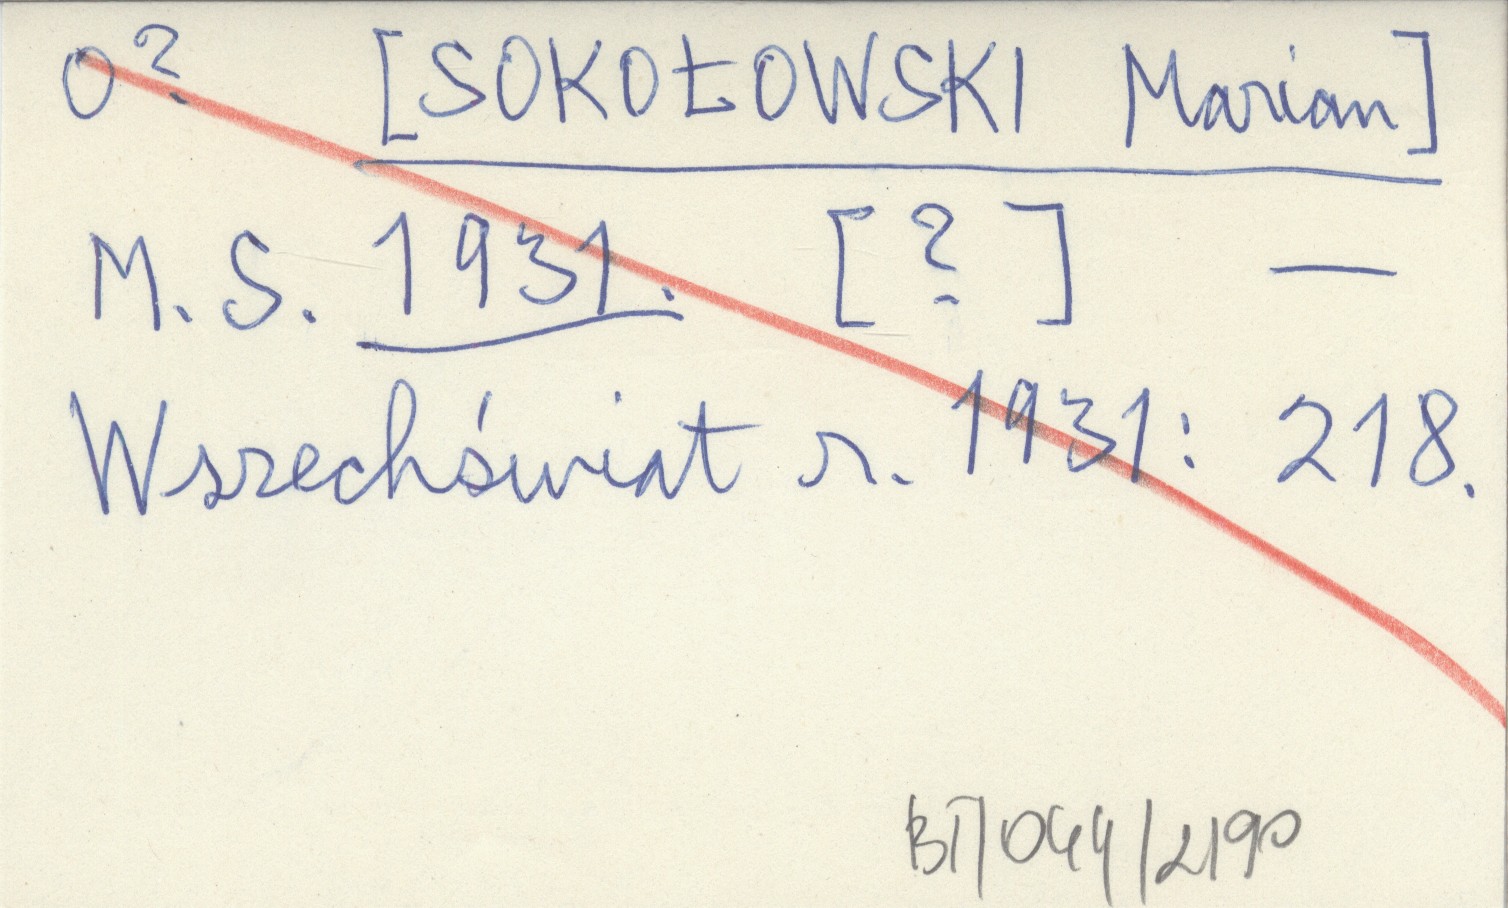 O? [SOKOŁOWSKI Marian]
M. S. 1931. [?] —
Wszechświat r. 1931: 218.
BT/044/2190